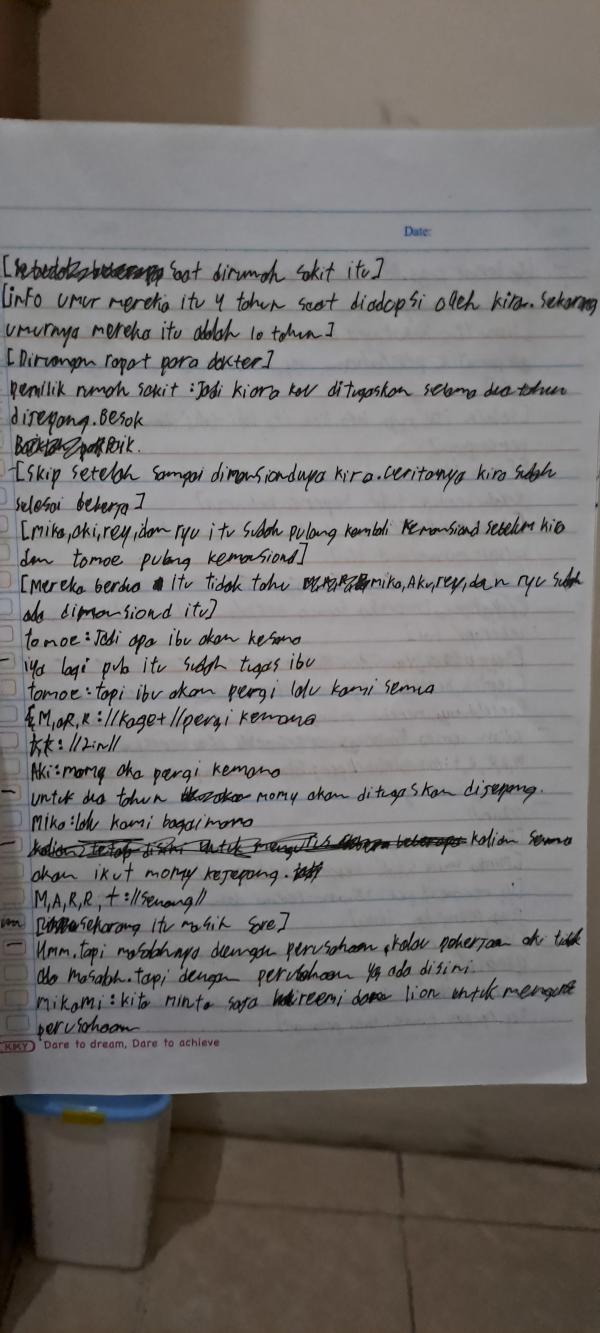 Date:
[ saat dirumah sakit itu]
[info umur mereka itu 4 tahun saat diadopsi oleh kira. sekarang
umurnya mereka itu adalah 10 tahun]
[Diruangan rapat para dokter]
pemilik rumah sakit : Jadi kiara kau ditugaskan selama dua tahun
dijepang. Besok
Baik.
[skip setelah sampai dimansiondnya kira. ceritanya kira sudah
selesai bekerja]
[mika, aki, rey, dan ryu itu sudah pulang kembali kemansiond sebelum kia
dan tomoe pulang kemansiond]
[Mereka berdua itu tidak tahu mika, Aki, rey, dan ryu sudah
ada dimansiond itu]
tomoe : Jadi apa ibu akan kesana
- iya lagi pula itu sudah tugas ibu
tomoe : tapi ibu akan pergi lalu kami semua
M, a, R, R : //kaget//pergi kemana
Aki : momy aka pergi kemana
- untuk dua tahun momy akan ditugaskan dijepang.
Mika : lalu kami bagaimana
- kalian semua
akan ikut momy kejepang.
M, A, R, R, t : //senang//
[sekarang itu masih sore]
- Hmm. tapi masalahnya dengan perusahaan, kalau pekerjaan aki tidak
ada masalah. tapi dengan perusahaan yg ada disini
mikami : kita minta saja reemi dan lion untuk mengurus
perusahaan
KKY Dare to dream, Dare to achieve